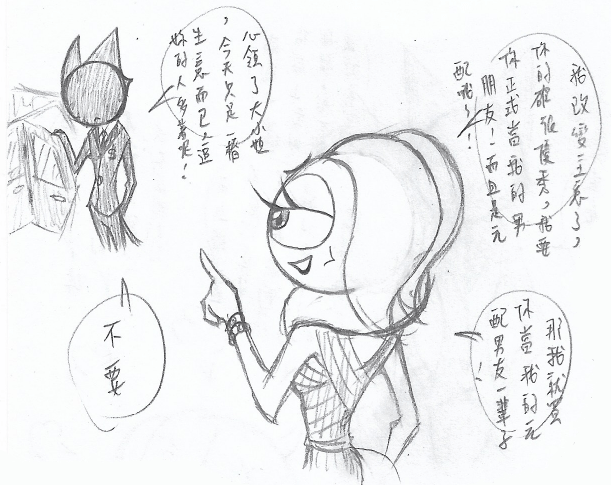 我改變主意了,
你的確很優秀,我要
你正式當我的男
朋友!而且是元
配哦~!
心領了大小姐
,今天只是一樁
生意而已,追
妳的人多著呢!
那我就買
你當我的元
配男友一輩子
!
不要